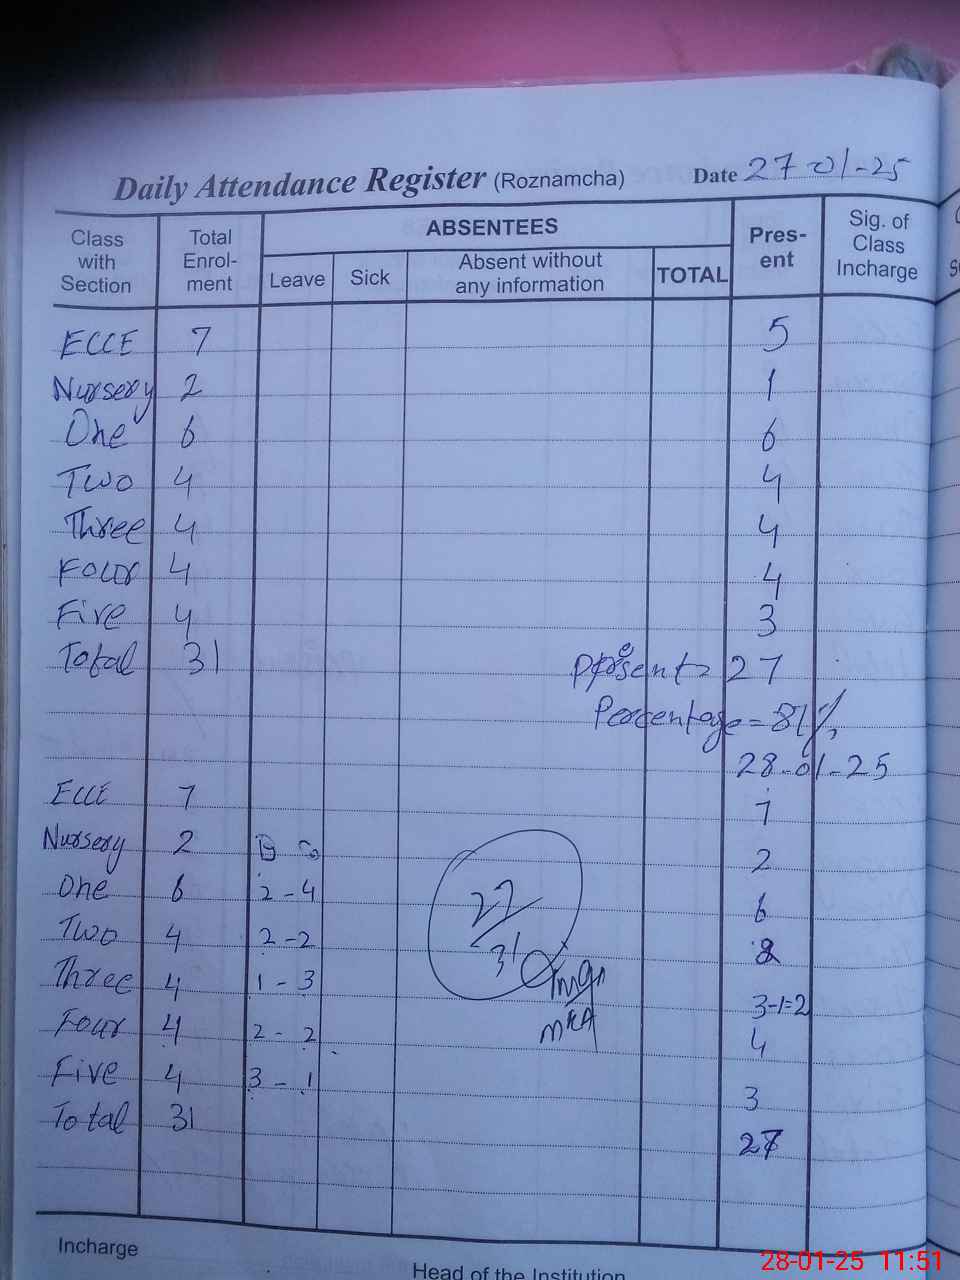 Daily Attendance Register (Roznamcha) Date 27 01-25
Class with Section Total Enrol-ment ABSENTEES Pres-ent Sig. of Class Incharge
Leave Sick Absent without any information TOTAL
ECCE 7 5
Nursery 2 1
One 6 6
Two 4 4
Three 4 4
Four 4 4
Five 4 3
Total 31 Present = 27
Percentage = 81%
28-01-25
ECCE 7 7
Nursery 2 2
One 6 2-4 6
Two 4 2-2
Three 4 1-3 3-1=2
Four 4 2-2 4
Five 4 3-1 3
Total 31 27
22/31
MEA
Incharge
Head of the Institution
28-01-25 11:51